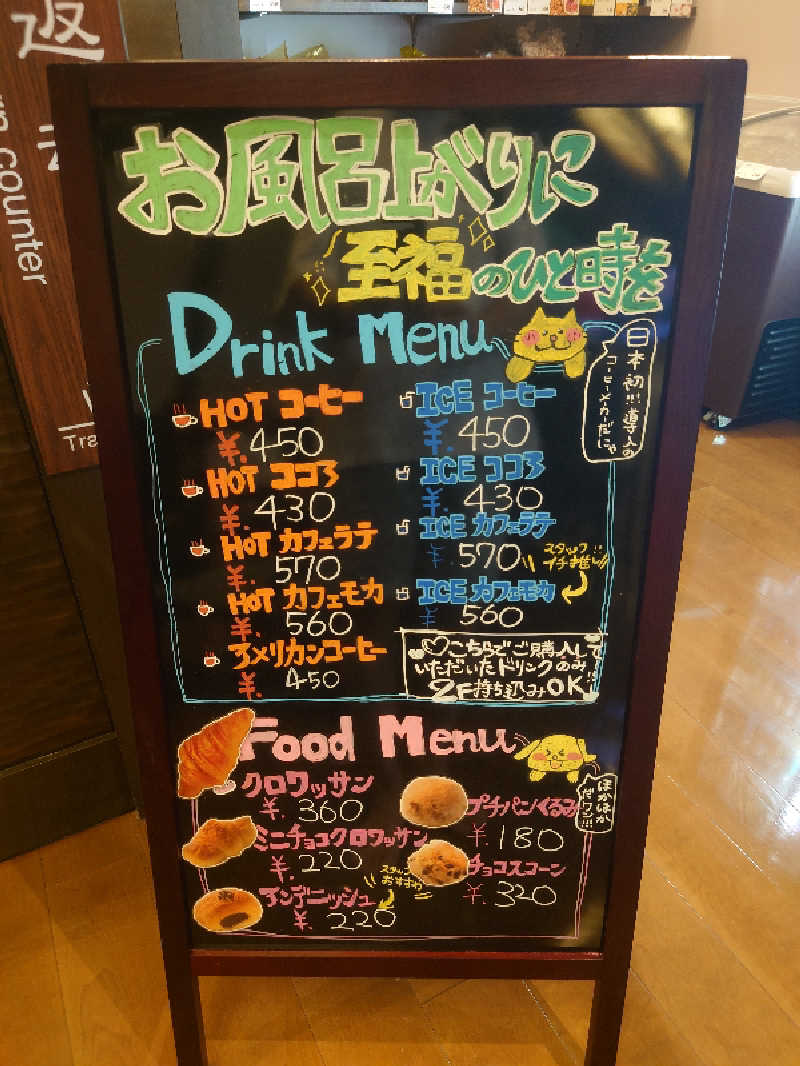 返
counter
Tra
お風呂上がりに
至福のひと時を
Drink Menu
日本初!!!導入の
コーヒーメーカーだにゃ
HOT コーヒー
¥.450
HOT ココア
¥.430
HOT カフェラテ
¥.570
HOT カフェモカ
¥.560
アメリカンコーヒー
¥.450
ICE コーヒー
¥.450
ICE ココア
¥.430
ICE カフェラテ
¥.570
スタッフ
プチ推し!!
ICE カフェモカ
¥.560
こちらでご購入して
いただいたドリンクのみ
2F持ち込みOK!!
Food Menu
ほかほか
だワン!!!
クロワッサン
¥.360
ミニチョコクロワッサン
¥.220
アンデニッシュ
¥.220
スタッフ
おすすめ
プチパンくるみ
¥.180
チョコスコーン
¥.320